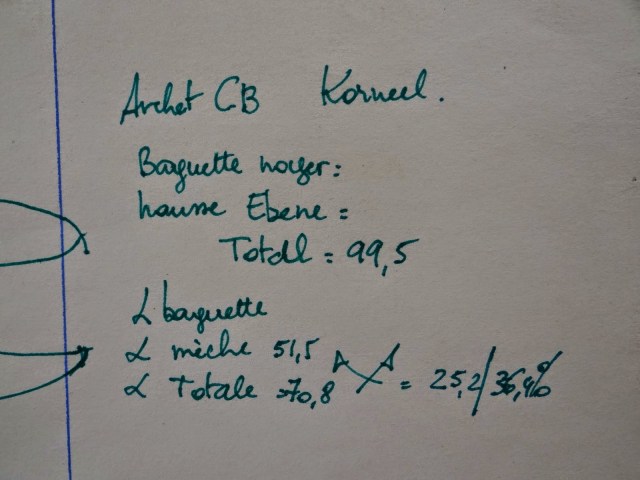 Archet CB Korneel.
Baguette noyer:
hausse Ebene =
Total = 99,5
L baguette
L mèche 51,5
L Totale 70,8 = 25,2/36,4%